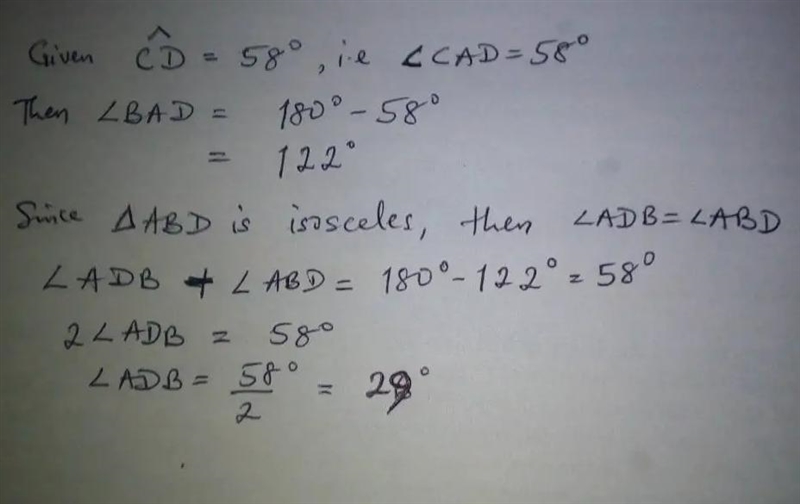 Given CD̂ = 58°, i.e ∠CAD = 58°
Then ∠BAD = 180° - 58°
= 122°
Since △ABD is isosceles, then ∠ADB = ∠ABD
∠ADB + ∠ABD = 180° - 122° = 58°
2∠ADB = 58°
∠ADB = 58°/2 = 29°